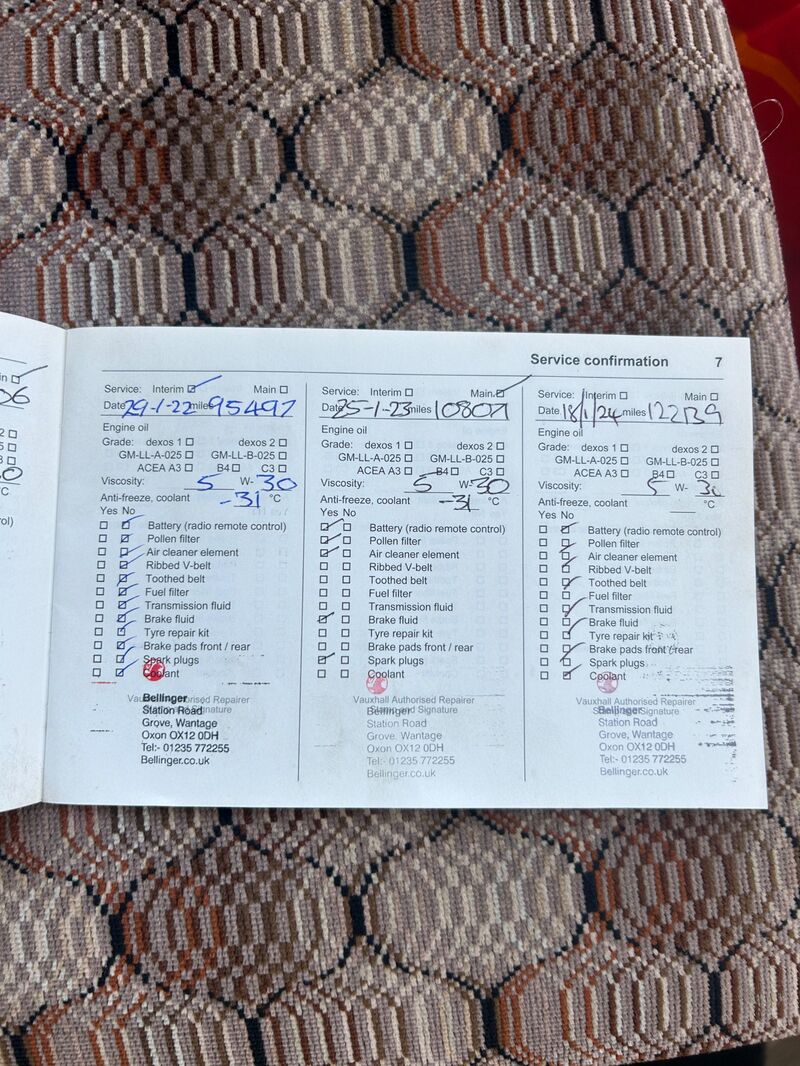 Service confirmation 7
Service: Interim Main
Date 29-1-22 miles 95497
Engine oil
Grade: dexos 1 dexos 2
GM-LL-A-025 GM-LL-B-025
ACEA A3 B4 C3
Viscosity: 5 W- 30
Anti-freeze, coolant -31 °C
Yes No
Battery (radio remote control)
Pollen filter
Air cleaner element
Ribbed V-belt
Toothed belt
Fuel filter
Transmission fluid
Brake fluid
Tyre repair kit
Brake pads front / rear
Spark plugs
Coolant
Vauxhall Authorised Repairer
Bellinger
Station Road
Grove, Wantage
Oxon OX12 0DH
Tel:- 01235 772255
Bellinger.co.uk
Service: Interim Main
Date 25-1-23 miles
Engine oil
Grade: dexos 1 dexos 2
GM-LL-A-025 GM-LL-B-025
ACEA A3 B4 C3
Viscosity: 5 W- 30
Anti-freeze, coolant -31 °C
Yes No
Battery (radio remote control)
Pollen filter
Air cleaner element
Ribbed V-belt
Toothed belt
Fuel filter
Transmission fluid
Brake fluid
Tyre repair kit
Brake pads front / rear
Spark plugs
Coolant
Vauxhall Authorised Repairer
Stamp and Signature
Bellinger
Station Road
Grove, Wantage
Oxon OX12 0DH
Tel:- 01235 772255
Bellinger.co.uk
Service: Interim Main
Date 18/1/24 miles 122139
Engine oil
Grade: dexos 1 dexos 2
GM-LL-A-025 GM-LL-B-025
ACEA A3 B4 C3
Viscosity: 5 W- 30
Anti-freeze, coolant °C
Yes No
Battery (radio remote control)
Pollen filter
Air cleaner element
Ribbed V-belt
Toothed belt
Fuel filter
Transmission fluid
Brake fluid
Tyre repair kit
Brake pads front / rear
Spark plugs
Coolant
Vauxhall Authorised Repairer
Stamp and Signature
Bellinger
Station Road
Grove, Wantage
Oxon OX12 0DH
Tel:- 01235 772255
Bellinger.co.uk